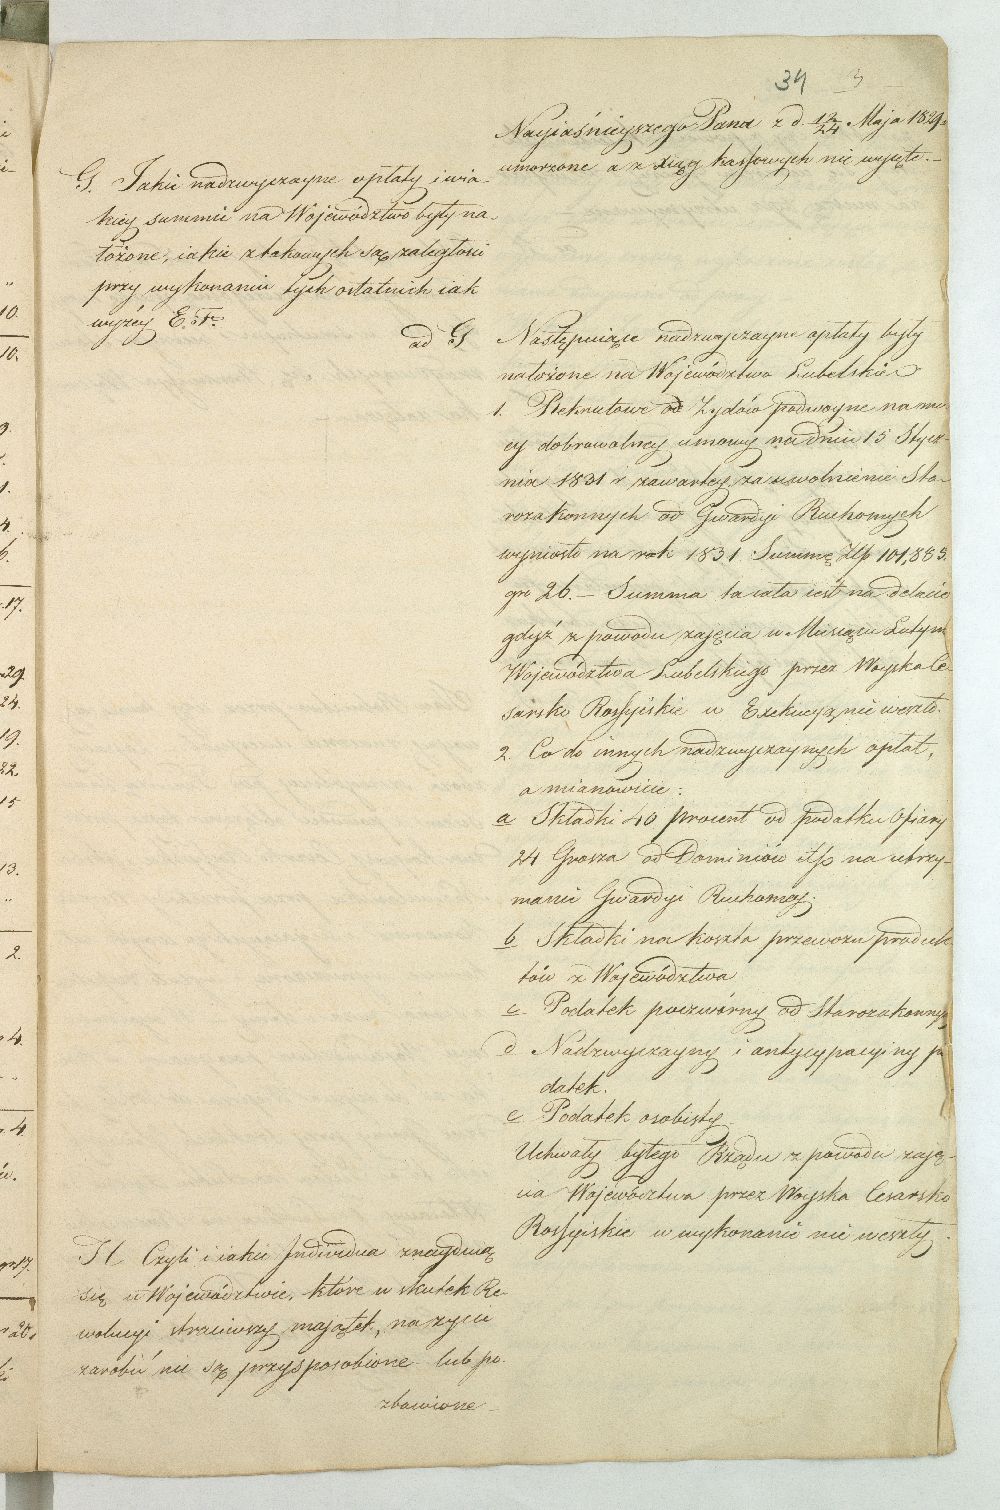 34 3
Nayiaśnieyszego Pana z d. 12/24 Maja 1829.
umorzone a z xiąg kassowych nie wyięte. —
G. Jakie nadzwyczayne opłaty i wia-
kiey summie na Województwo były na-
łożone, iakie z takowych są zaległości
przy wykonaniu tych ostatnich iak
wyżey E. F.
ad G
Następuiące nadzwyczayne opłaty były
nałożone na Województwo Lubelskie
1. Rekrutowe od Żydów podwoyne na mo-
cy dobrowolney umowy na dniu 15 Stycz-
nia 1831 r zawartey za uwolnienie Sta-
rozakonnych od Gwardyi Ruchomych
wyniosło na rok 1831 Summę Złp 101,883.
gro 26. — Summa ta cała iest na delacie
gdyż z powodu zajęcia w Miesiącu Lutym
Województwa Lubelskiego przez Woyska Ce-
sarsko Rossyiskie w Exekucyą nie weszło.
2. Co do innych nadzwyczaynych opłat,
a mianowicie:
a Składki 40 procent od podatku Ofiary
24 Grosza od Dominiów itp na utrzy-
manie Gwardyi Ruchomey;
b Składki na koszta przewozu produk-
tów z Województwa
c Podatek poczwórny od Starozakonnych
d Nadzwyczayny i antycypacyiny po
datek.
e Podatek osobisty
Uchwały byłego Rządu z powodu zaję-
cia Województwa przez Woyska Cesarsko
Rossyiskie w wykonanie nie weszły.
H Czyli i iakie Indiwidua znayduią
się w Województwie, które w skutek Re-
wolucyi straciwszy majątek, na życie
zarobić nie są przysposobione lub po-
zbawione
10.
10.
17.
29
24.
19.
22.
15
13.
2.
4.
4
17.